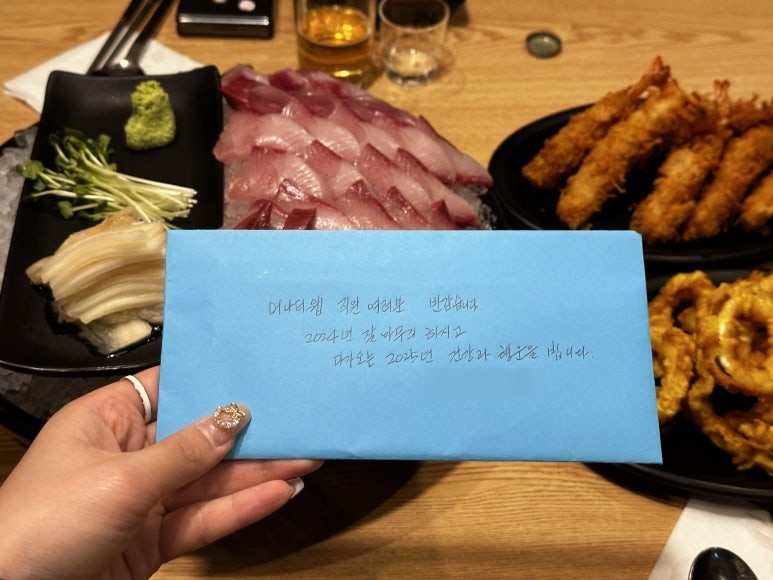 이나의웹 직원 여러분 반갑습니다.
2024년 잘 마무리 하시고
다가오는 2025년 건강과 행운을 빕니다.